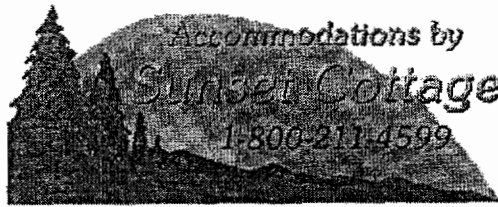 Accommodations by
Sunset Cottage
1-800-211-4599